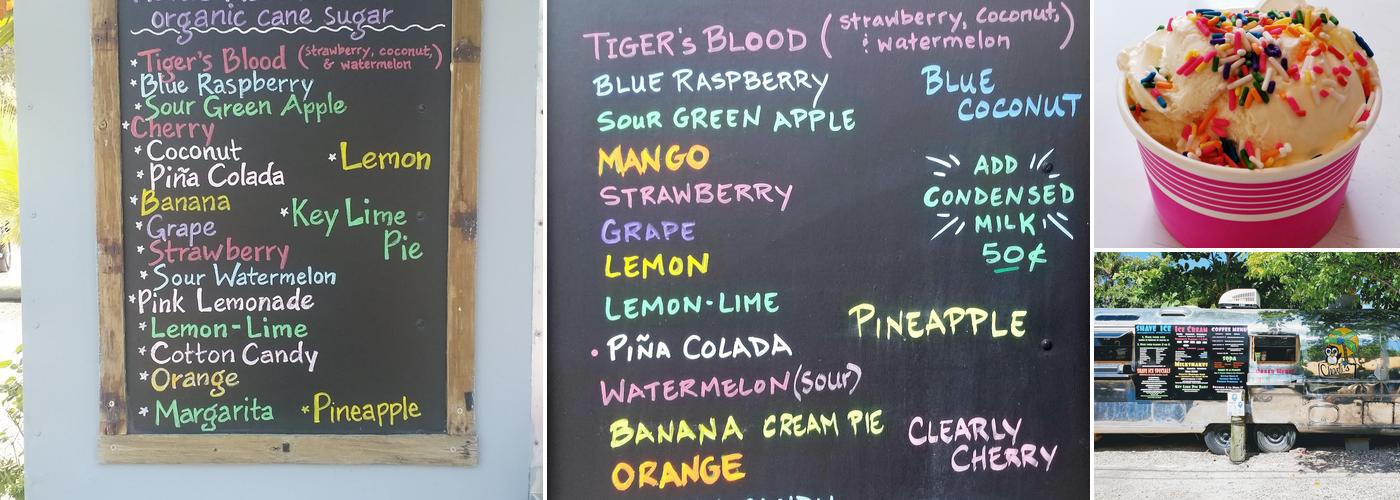 organic cane sugar
*Tiger's Blood (strawberry, coconut,
& watermelon)
*Blue Raspberry
*Sour Green Apple
*Cherry
*Coconut
*Lemon
*Piña Colada
*Banana
*Key Lime
Pie
*Grape
*Strawberry
*Sour Watermelon
*Pink Lemonade
*Lemon-Lime
*Cotton Candy
*Orange
*Margarita
*Pineapple
TIGER'S BLOOD (strawberry, coconut,
& watermelon)
BLUE RASPBERRY
BLUE
COCONUT
SOUR GREEN APPLE
MANGO
STRAWBERRY
GRAPE
LEMON
LEMON-LIME
• PIÑA COLADA
WATERMELON (sour)
BANANA CREAM PIE
ORANGE
ADD
CONDENSED
MILK
50¢
PINEAPPLE
CLEARLY
CHERRY
SHAVE ICE
ICE CREAM
COFFEE MENU
MILKSHAKES
SODA
SHAVE ICE SPECIALS
KEY LIME PIE BARS